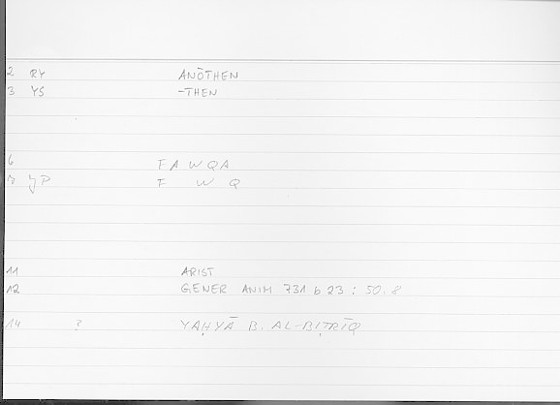 2 RY ANŌTHEN
3 YS -THEN
6 FAWQA
F W Q
11 ARIST
12 GENER ANIM 731 b 23 : 50.8
14 ? YAḤYĀ B. AL-BIṬRĪQ